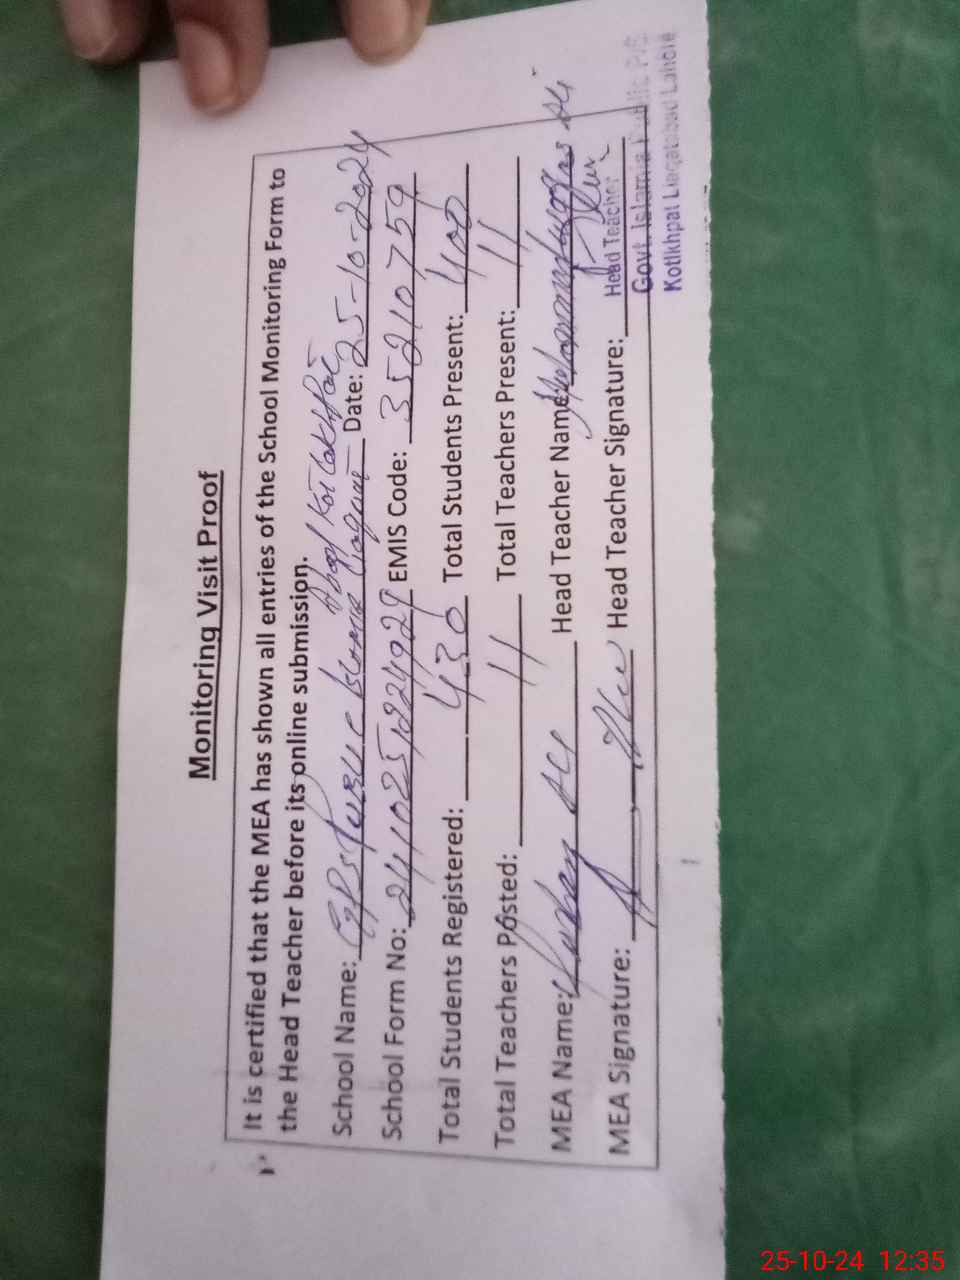 Monitoring Visit Proof
It is certified that the MEA has shown all entries of the School Monitoring Form to
the Head Teacher before its online submission.
School Name: GPS Public Islamia Date: 25-10-2024
School Form No: 2410251224929 EMIS Code: 35210759
Total Students Registered: 430 Total Students Present: 400
Total Teachers Posted: 11 Total Teachers Present: 11
MEA Name: Ali Head Teacher Name: Ali
MEA Signature: Head Teacher Signature:
Head Teacher
Govt. Islamia Public P/S
Kotlkhpat Liaqatabad Lahore
25-10-24 12:35